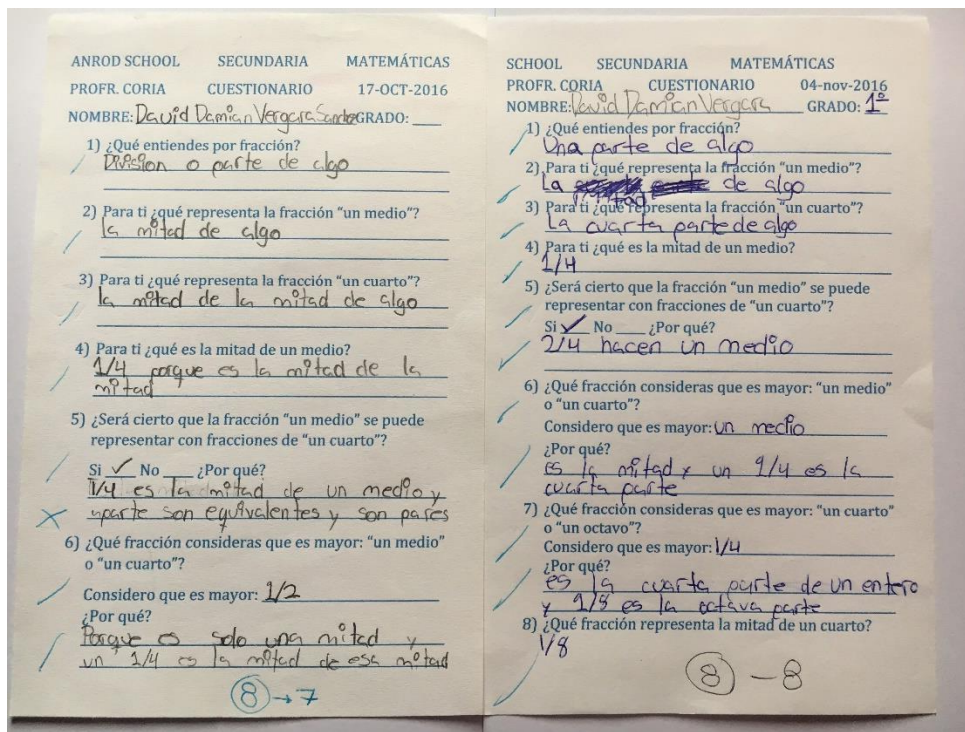 ANROD SCHOOL SECUNDARIA MATEMÁTICAS
PROFR. CORIA CUESTIONARIO 17-OCT-2016
NOMBRE: David Damian Vergara GRADO: ___
1) ¿Qué entiendes por fracción?
Division o parte de algo
2) Para ti ¿qué representa la fracción "un medio"?
la mitad de algo
3) Para ti ¿qué representa la fracción "un cuarto"?
la mitad de la mitad de algo
4) Para ti ¿qué es la mitad de un medio?
1/4 porque es la mitad de la
mitad
5) ¿Será cierto que la fracción "un medio" se puede
representar con fracciones de "un cuarto"?
Si ✓ No ___ ¿Por qué?
1/4 es la mitad de un medio y
aparte son equivalentes y son pares
6) ¿Qué fracción consideras que es mayor: "un medio"
o "un cuarto"?
Considero que es mayor: 1/2
¿Por qué?
Porque es solo una mitad y
un 1/4 es la mitad de esa mitad
8 → 7
SCHOOL SECUNDARIA MATEMÁTICAS
PROFR. CORIA CUESTIONARIO 04-nov-2016
NOMBRE: David Damian Vergara GRADO: 1º
1) ¿Qué entiendes por fracción?
Una parte de algo
2) Para ti ¿qué representa la fracción "un medio"?
La de algo
3) Para ti ¿qué representa la fracción "un cuarto"?
La cuarta parte de algo
4) Para ti ¿qué es la mitad de un medio?
1/4
5) ¿Será cierto que la fracción "un medio" se puede
representar con fracciones de "un cuarto"?
Si ✓ No ___ ¿Por qué?
2/4 hacen un medio
6) ¿Qué fracción consideras que es mayor: "un medio"
o "un cuarto"?
Considero que es mayor: un medio
¿Por qué?
es la mitad y un 1/4 es la
cuarta parte
7) ¿Qué fracción consideras que es mayor: "un cuarto"
o "un octavo"?
Considero que es mayor: 1/4
¿Por qué?
es la cuarta parte de un entero
y 1/8 es la octava parte
8) ¿Qué fracción representa la mitad de un cuarto?
1/8
8 – 8